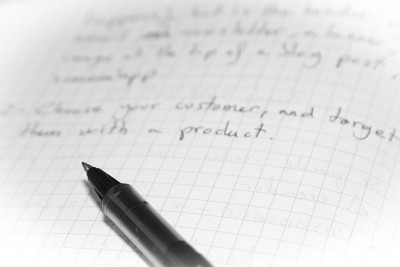 but in the header
email newsletter, a banner
image at the top of a blog post,
2- Choose your customer, and target
them with a product.